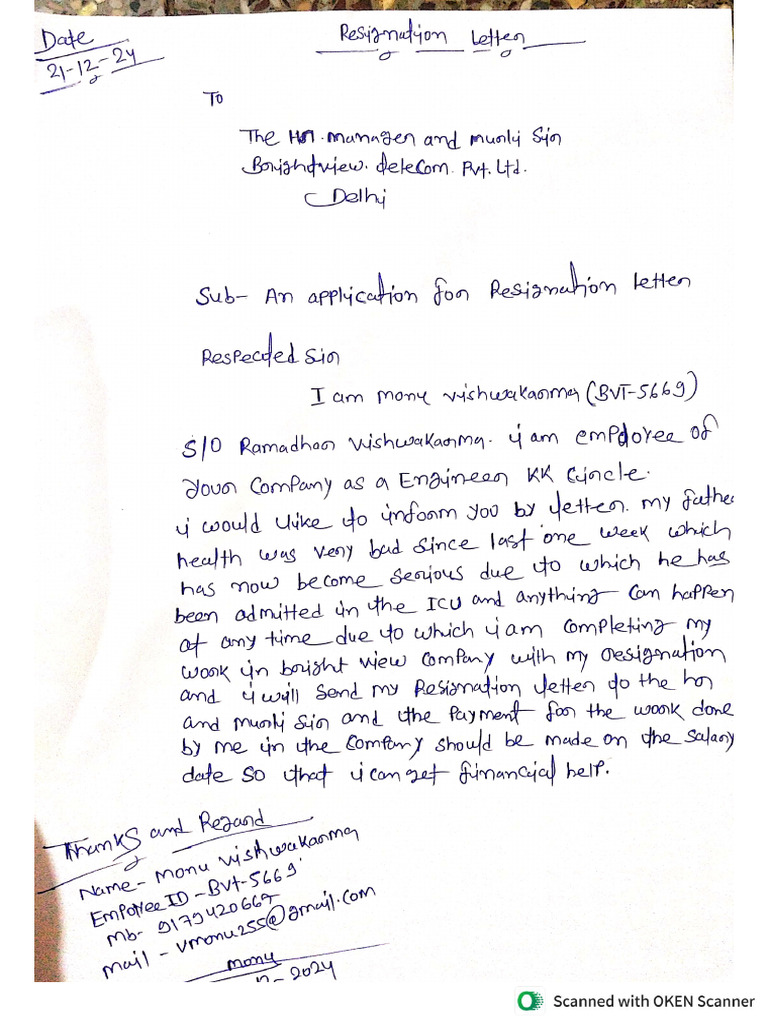 Date
21-12-24
Resignation Letter
To
The HR. manager and murli Sir
Brightview. telecom. Pvt. Ltd.
Delhi
Sub- An application for Resignation letter
Respected Sir
I am monu vishwakarma (BVT-5669)
S/O Ramadhar vishwakarma. i am employee of
your Company as a Engineer KK Circle.
i would like to inform you by letter. my father
health was very bad since last one week which
has now become serious due to which he has
been admitted in the ICU and anything can happen
at any time due to which i am completing my
work in bright view company with my resignation
and i will send my Resignation letter to the hr
and murli Sir and the payment for the work done
by me in the company should be made on the salary
date so that i can get financial help.
Thanks and Regard
Name- monu vishwakarma
Employee ID - BVT-5669
Mb- 9179420667
mail - vmonu255@gmail.com
monu
12-2024
Scanned with OKEN Scanner